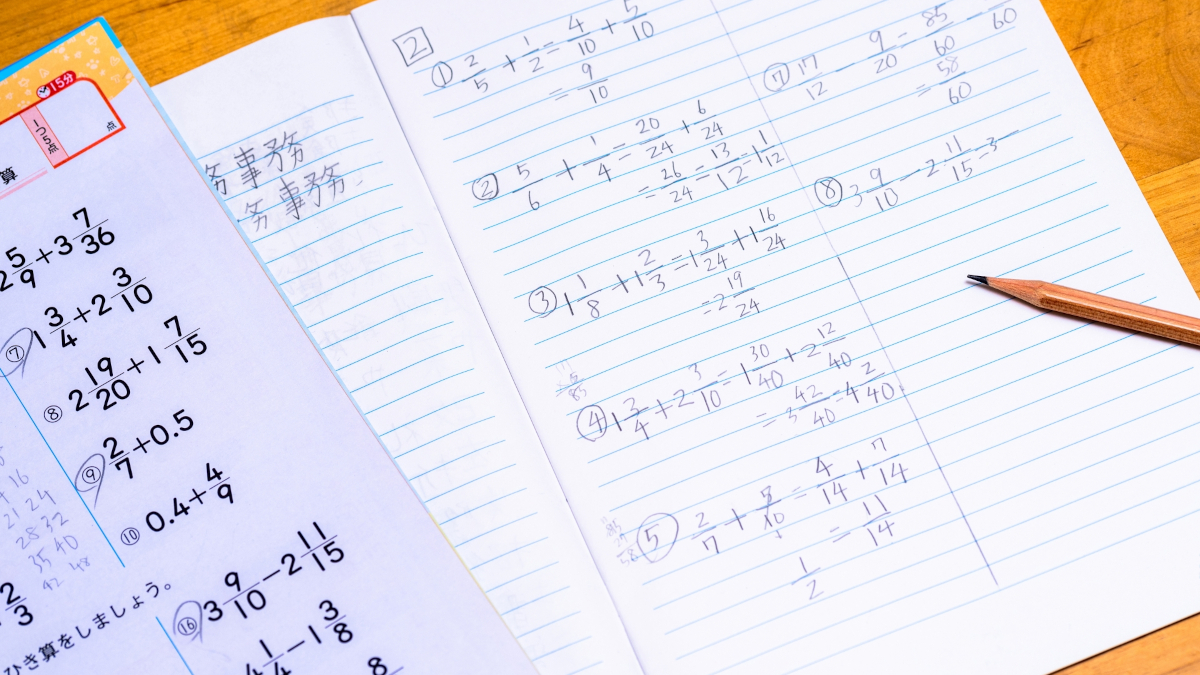 15分
1つ5点
点
算
2 5/9 + 3 7/36
⑦ 1 3/4 + 2 3/10
⑧ 2 19/20 + 1 7/15
⑨ 2/7 + 0.5
⑩ 0.4 + 4/9
16
21 24
28 32
35 40
42 48
2/3
ひき算をしましょう。
⑯ 3 9/10 − 2 11/15
4 1/4 − 1 3/8
8
務事務
務事務
2
① 2/5 + 1/2 = 4/10 + 5/10
= 9/10
② 5/6 + 1/4 = 20/24 + 6/24
= 26/24 = 13/12 = 1 1/12
③ 1 1/8 + 1 2/3 = 1 3/24 + 1 16/24
= 2 19/24
④ 1 3/4 + 2 3/10 = 1 30/40 + 2 12/40
= 3 42/40 = 4 2/40
⑤ 2/7 + 5/10 = 4/14 + 7/14
1/2 = 11/14
⑦ 17/12 − 9/20 = 85/60 − /60
= 58/60
⑧ 3 9/10 − 2 11/15 = 3